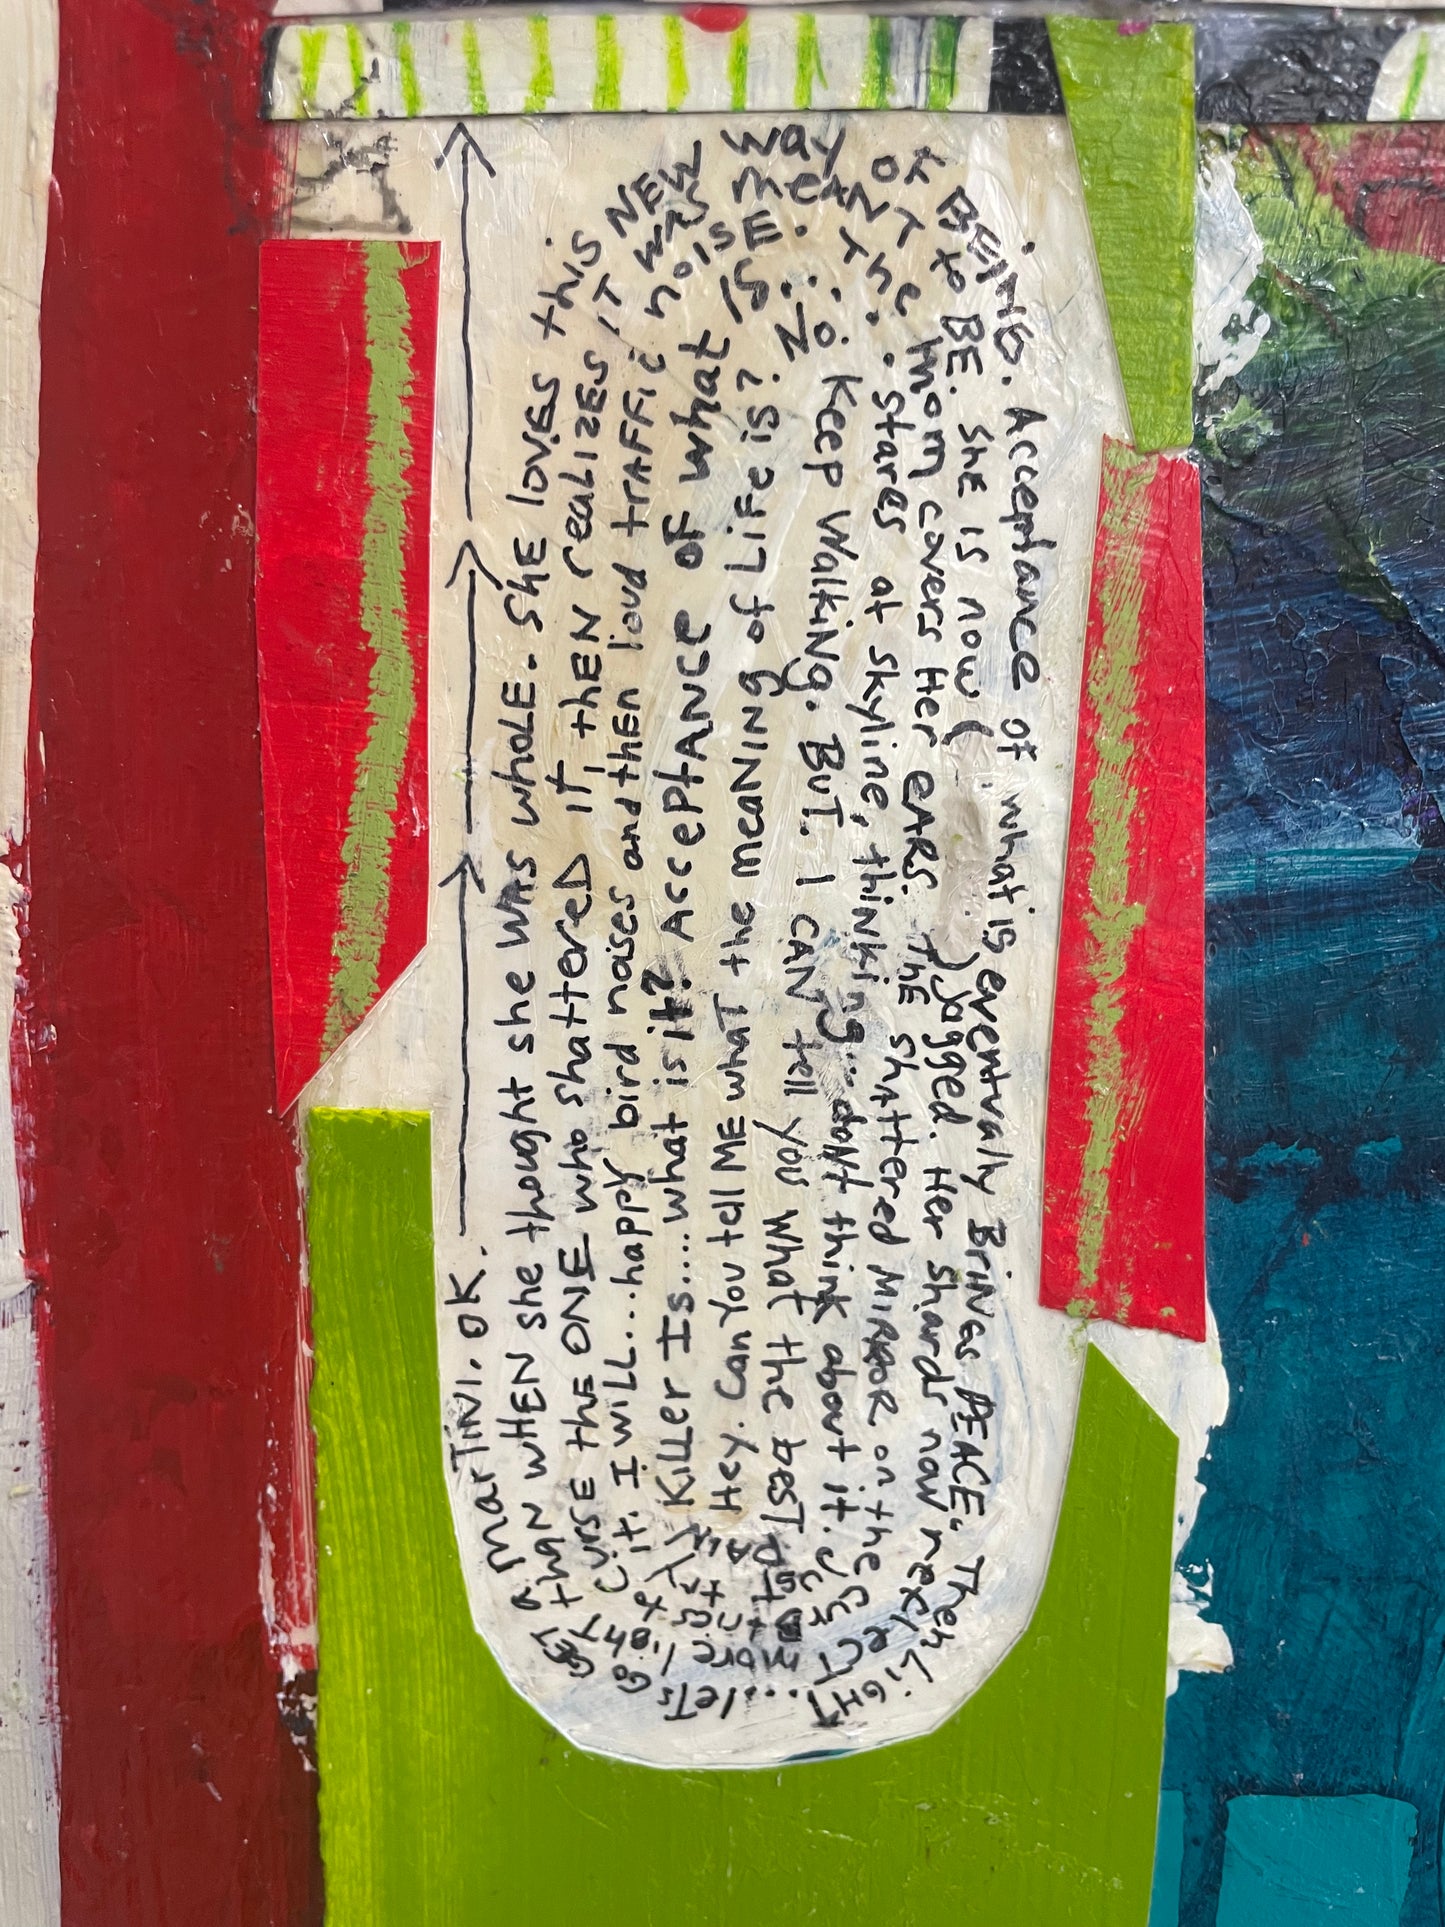 Hey. Can You tell ME what the meaning of Life is?
No. Keep Walking. BUT. I CAN tell you what the best
Killer Is.... what is it? Acceptance of what IS
stares at skyline, thinking... dont think about it.
it. I WILL... happy bird noises and then loud traffic noise.
the mom covers Her EARS. the shattered MIRROR on the
Curse the ONE who shattered it then realizes IT was meant to BE. She is now (
) jagged. Her shards now reflect more light
than WHEN she thought she was whole. She loves this NEW way of BEING. Acceptance of what is eventually Brings PEACE. Then LIGHT
...lets GO GET a marTini. OK.